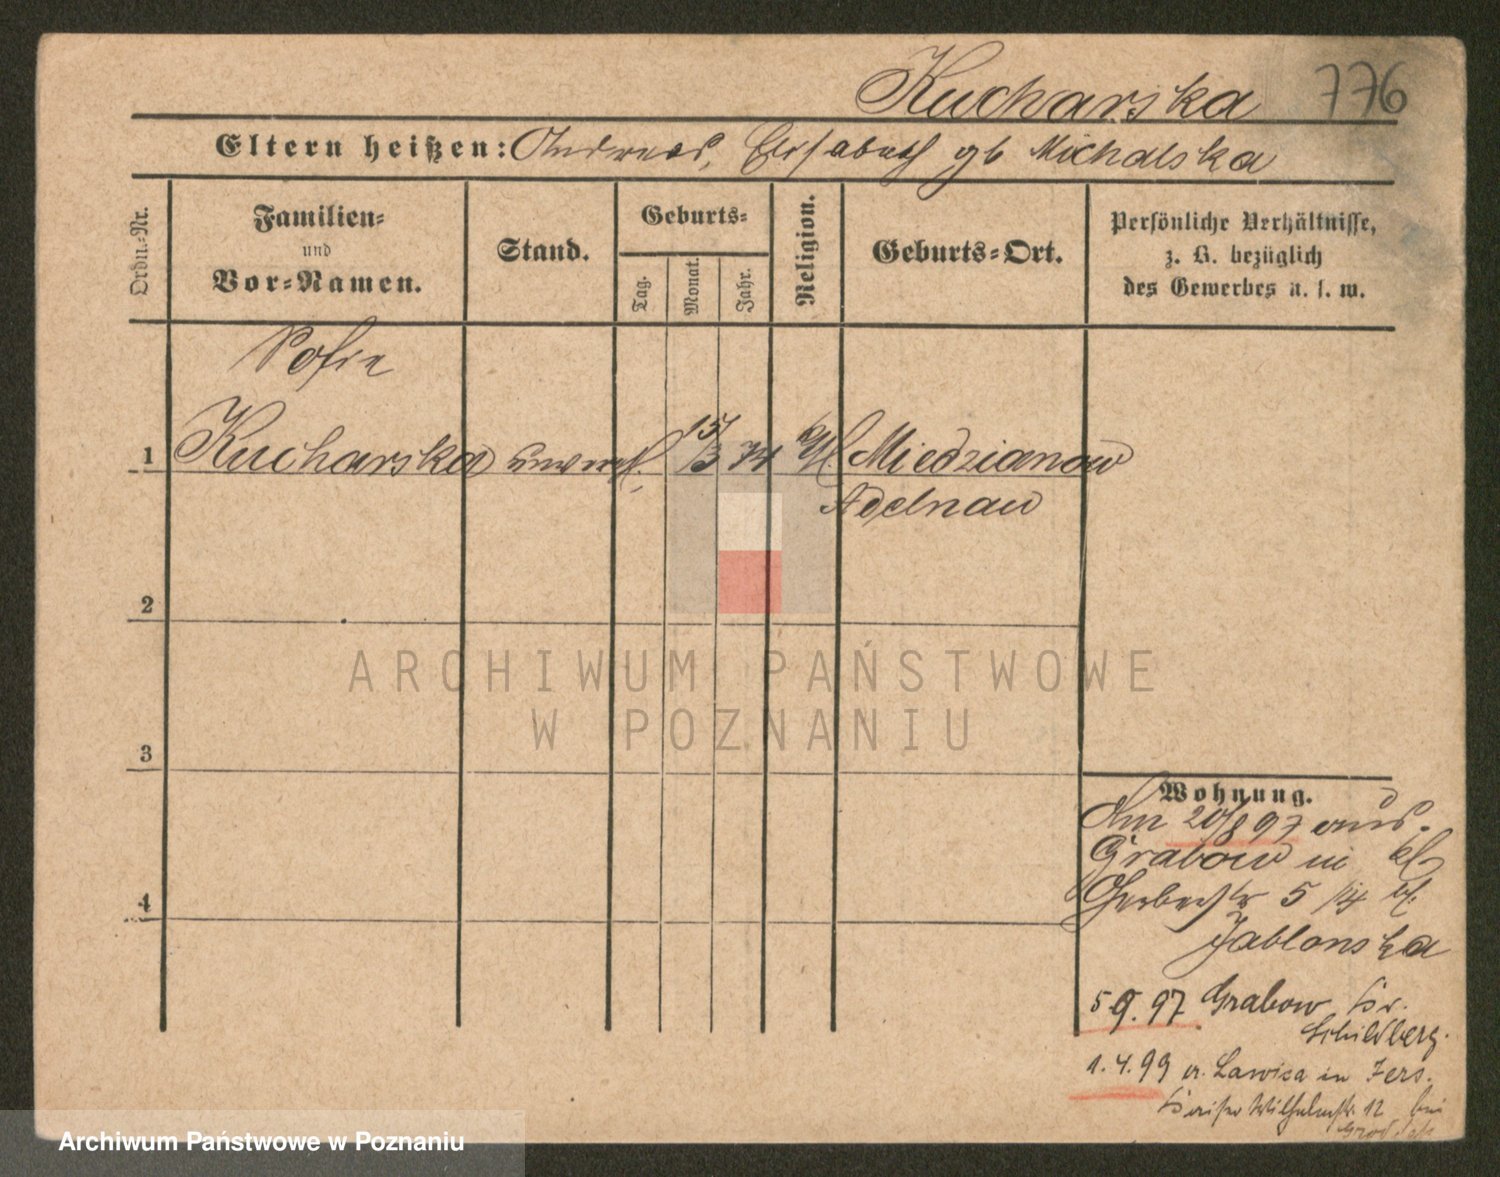 Kucharska 776
Eltern heißen: Andreas, Elisabeth gb Michalska
Ordn.-Nr.
Familien-
und
Vor-Namen.
Stand.
Geburts-
Tag.
Monat.
Jahr.
Religion.
Geburts-Ort.
Persönliche Verhältnisse,
z. B. bezüglich
des Gewerbes u. s. w.
Sofie
1 Kucharska unverh. 15/3 74 kth. Miedzianow
Adelnau
2
ARCHIWUM PAŃSTWOWE
W POZNANIU
3
4
Wohnung.
Am 20/8 97 aus
Grabow in
Gerberstr 5
Jablonska
5.9.97 Grabow Kr.
Schildberg.
1.4.99 v. Lawica in Jers.
Kaiser Wilhelmstr. 12 bei
Archiwum Państwowe w Poznaniu